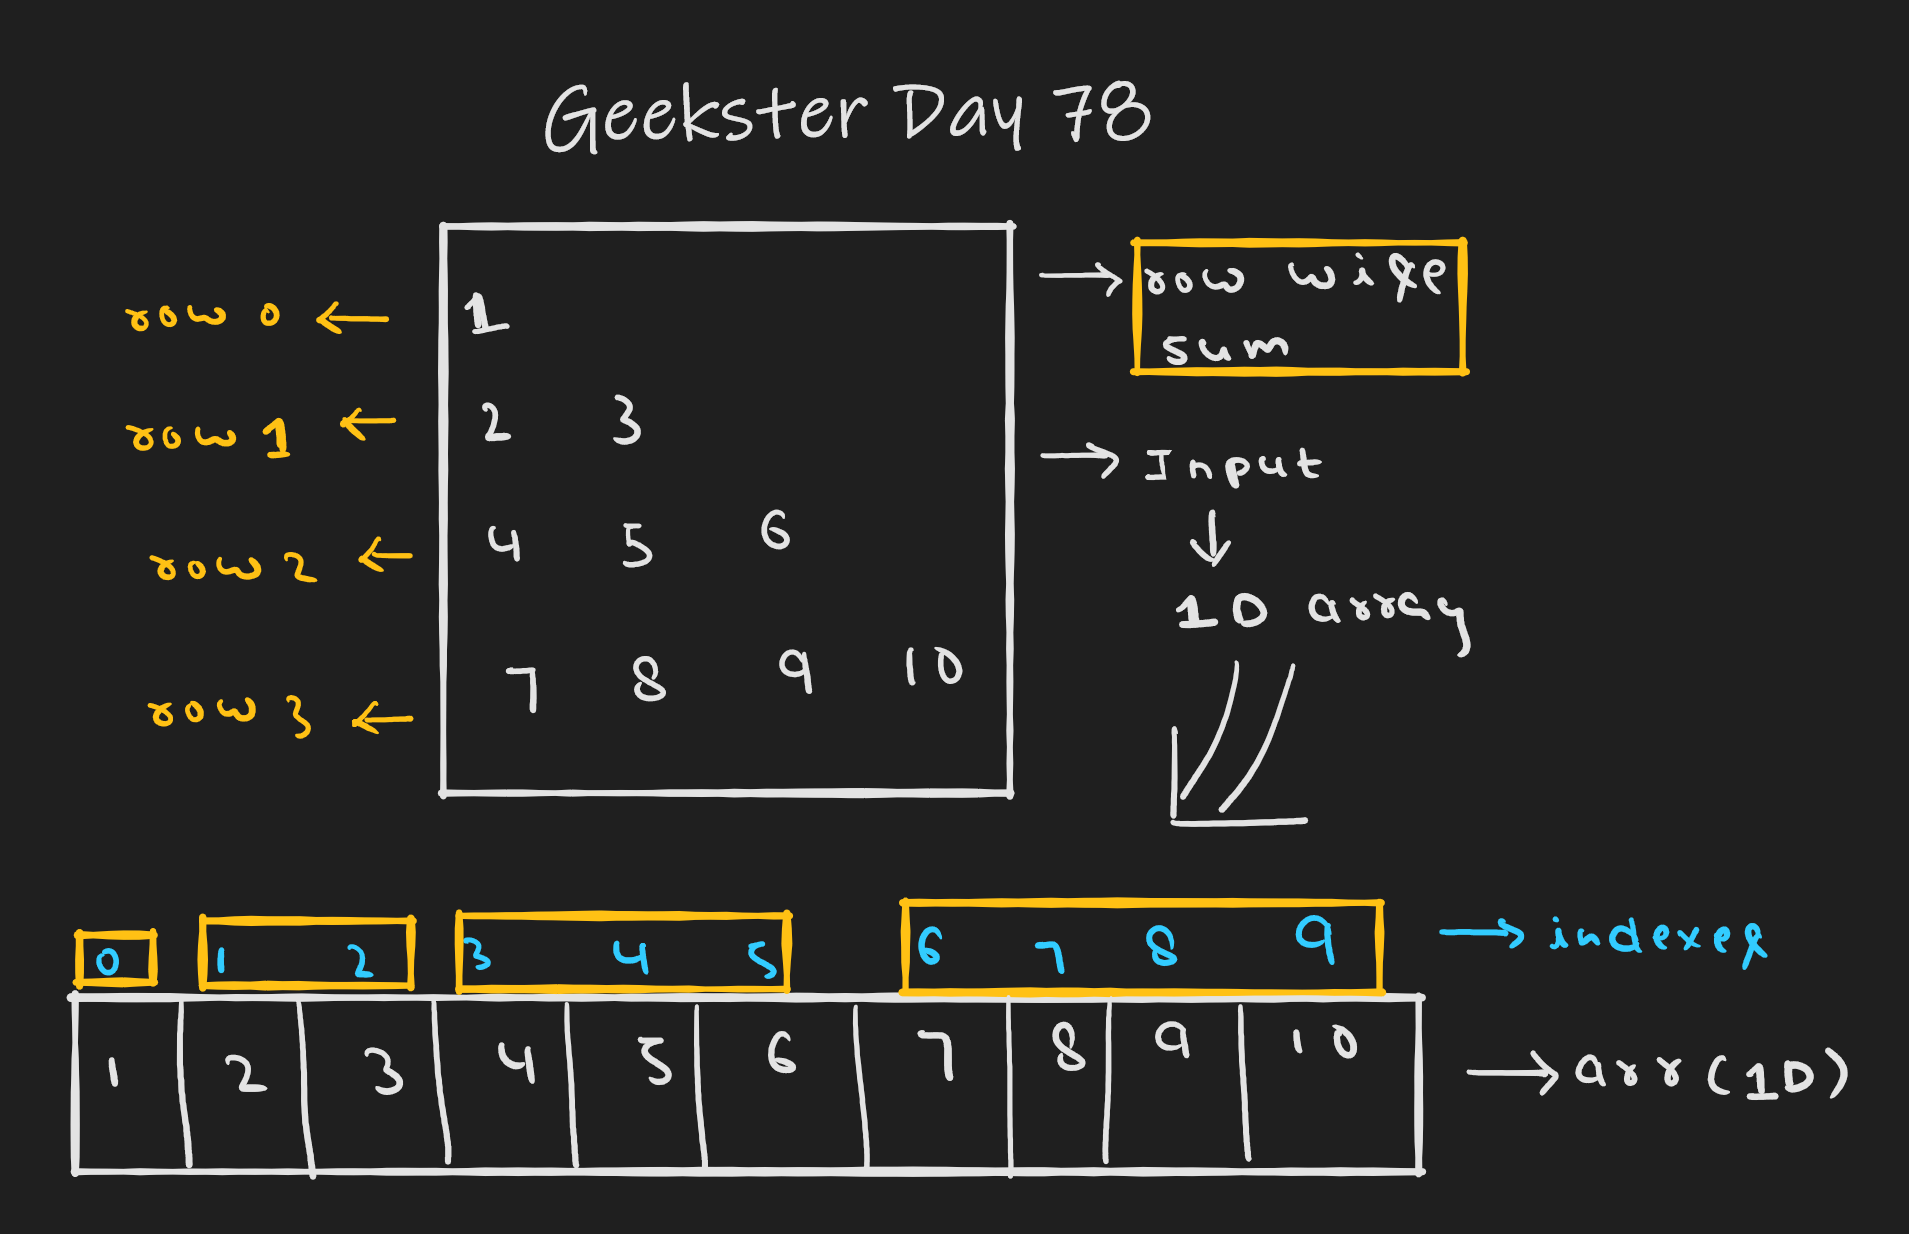 Geekster Day 78
row 0 ← 1
row 1 ← 2 3
row 2 ← 4 5 6
row 3 ← 7 8 9 10
→ row wise
sum
→ Input
↓
1D array
0 1 2 3 4 5 6 7 8 9 → indexes
1 2 3 4 5 6 7 8 9 10 → arr(1D)